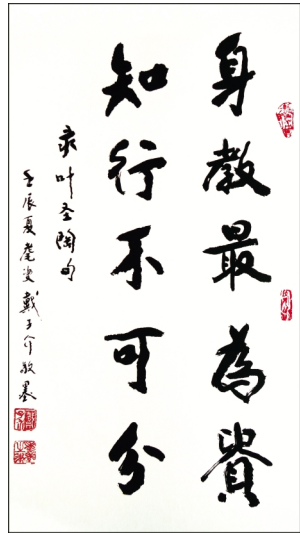 身教最為貴
知行不可分
录叶圣陶句
壬辰夏耄叟戴子介敬墨